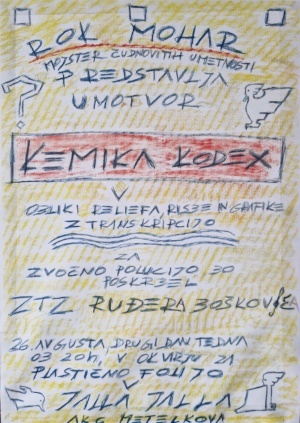 ROK MOHAR
MOJSTER ČUDNOVITIH UMETNOSTI
PREDSTAVLJA
UMOTVOR
KEMIKA KODEX
V
OBLIKI RELIEFA, RISBE IN GRAFIKE
Z TRANSKRIPCIJO
ZA
ZVOČNO POLUCIJO BO
POSKRBEL
ZTZ RUĐERA BOŠKOVIĆA
26. AVGUSTA, DRUGI DAN TEDNA
OB 20h, V OKVIRJU ZA
PLASTIČNO FOLIJO
V
JALLA JALLA
AKC METELKOVA